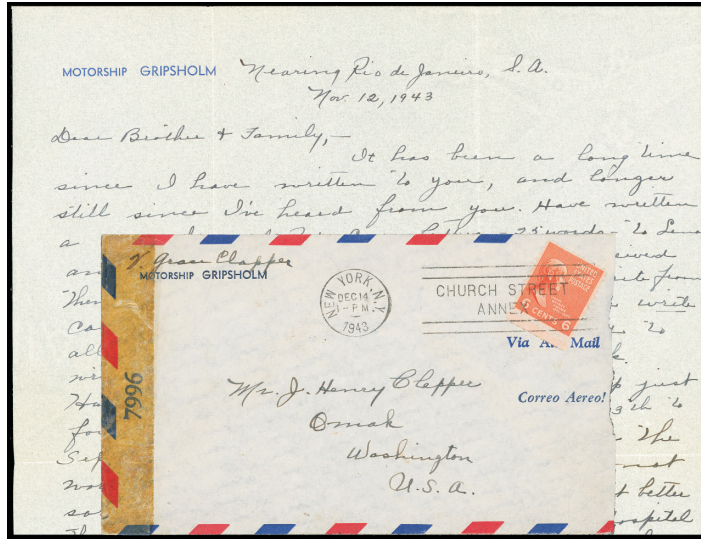 MOTORSHIP GRIPSHOLM
Nearing Rio de Janeiro, S.A.
Nov. 12, 1943
Dear Brother & Family,-
It has been a long time
since I have written to you, and longer
still since I've heard from you. Have written
a
25 words to
an
from
Then
write
Co
to
all
wr
Ha
just
13th to
fo
Sep
The
not
wo
better
so
hospital
Th
Grace Clapper
MOTORSHIP GRIPSHOLM
NEW YORK, N.Y.
DEC 14
1 - PM
1943
CHURCH STREET
ANNEX
UNITED
STATES
POSTAGE
6 CENTS 6
Via Air Mail
Correo Aereo!
7996
Mr. J. Henry Clapper
Omak
Washington
U.S.A.